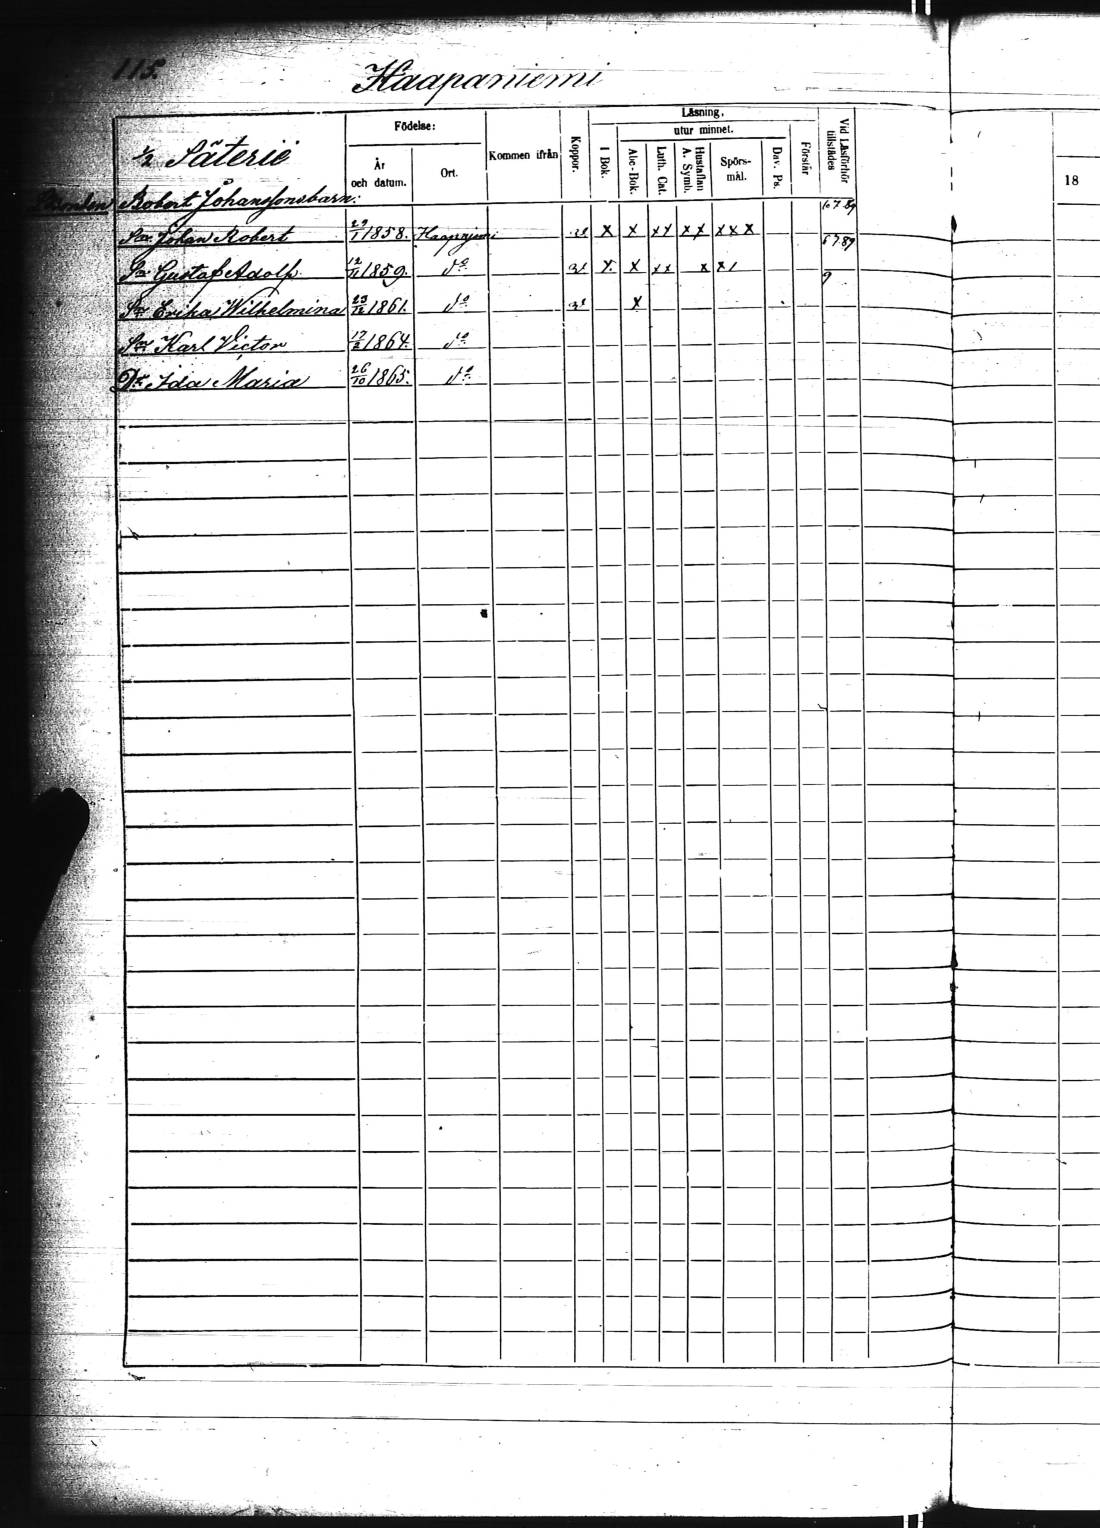 115.
Haapaniemi
½ Säterie
Födelse:
År och datum.
Ort.
Kommen ifrån
Koppor.
Läsning,
I Bok.
utur minnet.
Abc-Bok.
Luth. Cat.
Hustaflan A. Symb.
Spörs-mål.
Dav. Ps.
Förstår
Vid Läsförhör tillstädes
18
Bonden Robert Johanssons barn:
Son Johan Robert 29/1 1858. Haapajemi x x xx xx xxx 6789
Son Gustaf Adolf 12/11 1859. do x. x xx x x1 6789
Erika Wilhelmina 23/12 1861. do x 9
Son Karl Victor 17/2 1864. do
Dr Ida Maria 26/10 1865. do